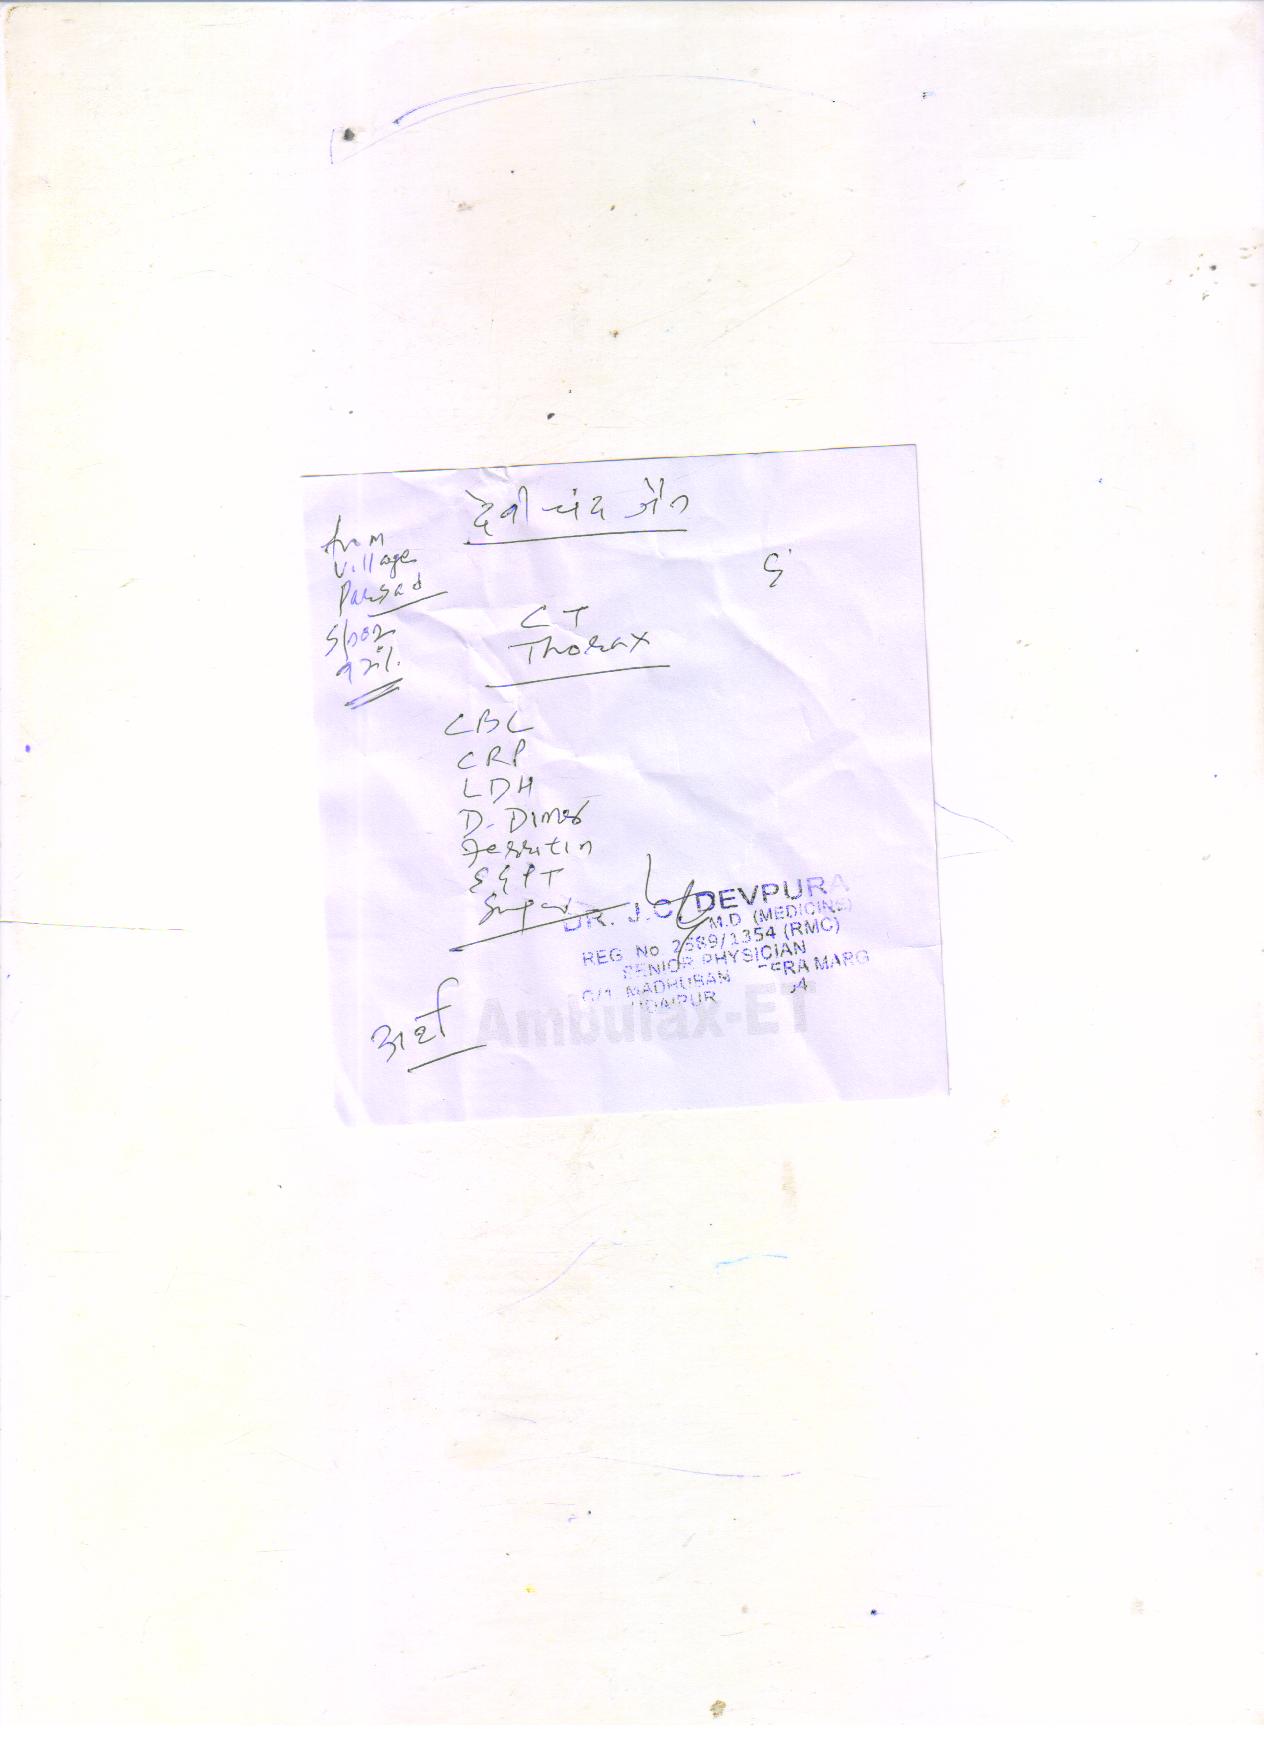 देवी चंद जैन
from
village
Parsad
CT
Thorax
CBC
CRP
LDH
D-Dimer
Ferritin
SGPT
Sugar
DR. J.C. DEVPURA
M.D (MEDICINE)
REG No 2589/1354 (RMC)
SENIOR PHYSICIAN
C/1 MADHUBAN ERA MARG
UDAIPUR
अर्थ
Ambulax-ET